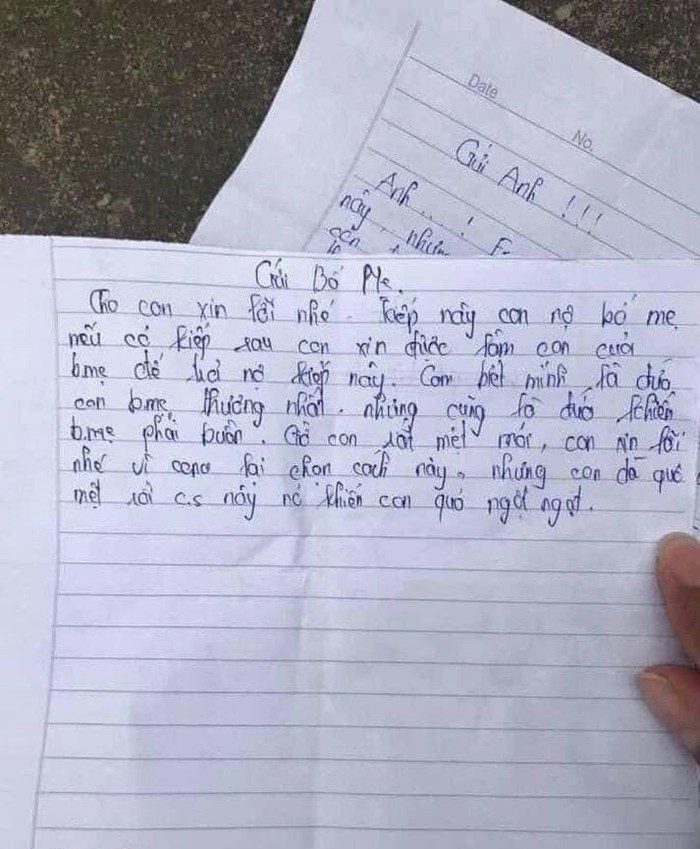 Date
No.
Gửi Anh !!!
Anh... !
này, nhưng
Gửi Bố Mẹ.
Cho con xin lỗi nhé. Kiếp này con nợ bố mẹ
nếu có kiếp sau con xin được làm con của
bmẹ để trả nợ kiếp này. Con biết mình là đứa
con bmẹ thương nhất. nhưng cũng là đứa khiến
b.mẹ phải buồn. Giờ con rất mệt mỏi, con xin lỗi
nhé vì con lại chọn cách này, nhưng con đã quá
mệt rồi c.s này nó khiến con quá ngột ngạt.